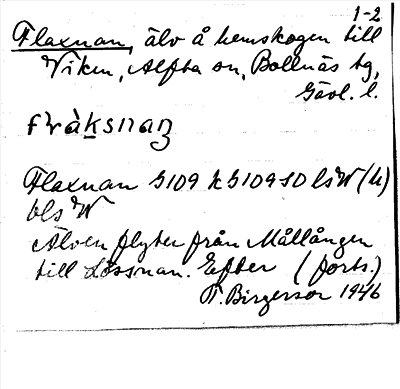 1-2
Flaxnan, älv å hemskogen till
Viken, Alfta sn, Bollnäs tg,
Gävl. l.
Flaxnan 5109 k 5109 SO ls W (h)
bls W
Älven flyter från Mållången
till Lössnan. Efter (forts.)
T. Birgersson 1946